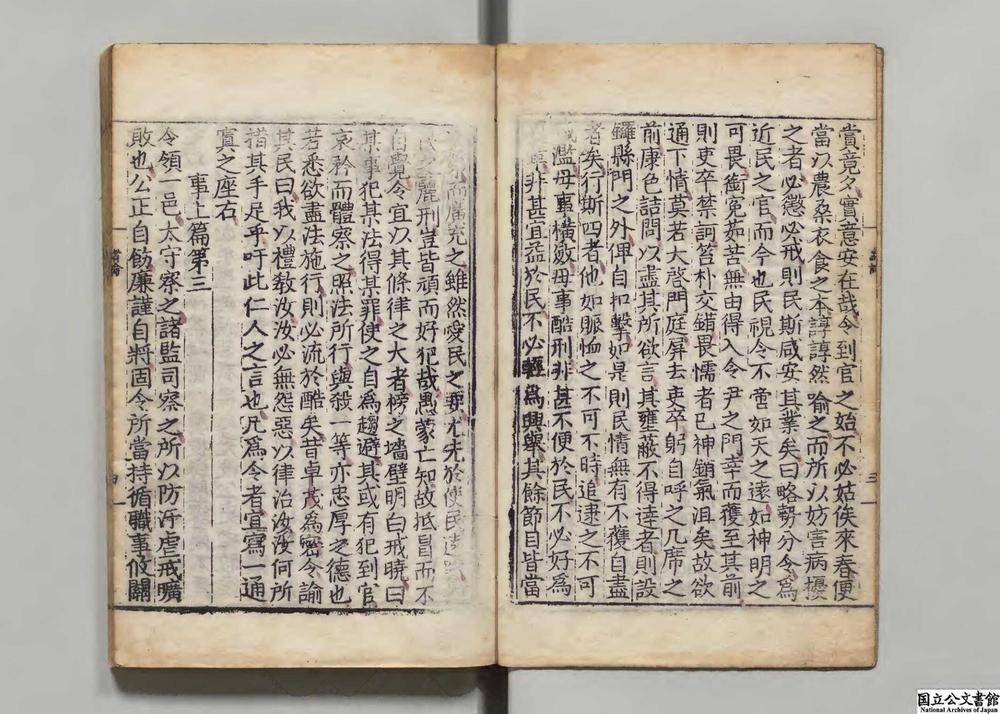 賞竟夕實意安在哉令到官之始不必姑俟來春便
當以農桑衣食之本諄諄然喻之而所以妨害病擾
之者必懲必戒則民斯咸安其業矣曰略勢分令爲
近民之官而今也民視令不啻如天之遠如神明之
可畏銜冤茹苦無由得入令尹之門幸而獲至其前
則吏卒禁訶笞朴交錯畏懦者已神銷氣沮矣故欲
通下情莫若大啓門庭屏去吏卒躬自呼之几席之
前康色詰問以盡其所欲言其壅蔽不得達者則設
鑼縣門之外俾自扣擊如是則民情無有不獲自盡
者矣行斯四者他如賑恤之不可不時追逮之不可
濫毋事橫斂毋事酷刑非甚不便於民不必好爲
非甚宜益於民不必輕爲興舉其餘節目皆當
而廣充之雖然愛民之要尤先於使民遠
麗刑豈皆頑而好犯哉愚蒙亡知故抵冒而不
自覺令宜以其條律之大者榜之墻壁明白戒曉曰
某事犯某法得某罪使之自爲趨避其或有犯到官
哀矜而體察之照法所行與殺一等亦忠厚之德也
若悉欲盡法施行則必流於酷矣昔卓茂爲密令諭
其民曰我以禮敎汝汝必無怨惡以律治汝汝何所
措其手足乎吁此仁人之言也凡爲令者宜寫一通
寘之座右
事上篇第三
令領一邑太守察之諸監司察之所以防汙虐戒曠
敗也公正自飭廉謹自將固令所當持循職事攸關
三
四
国立公文書館
National Archives of Japan